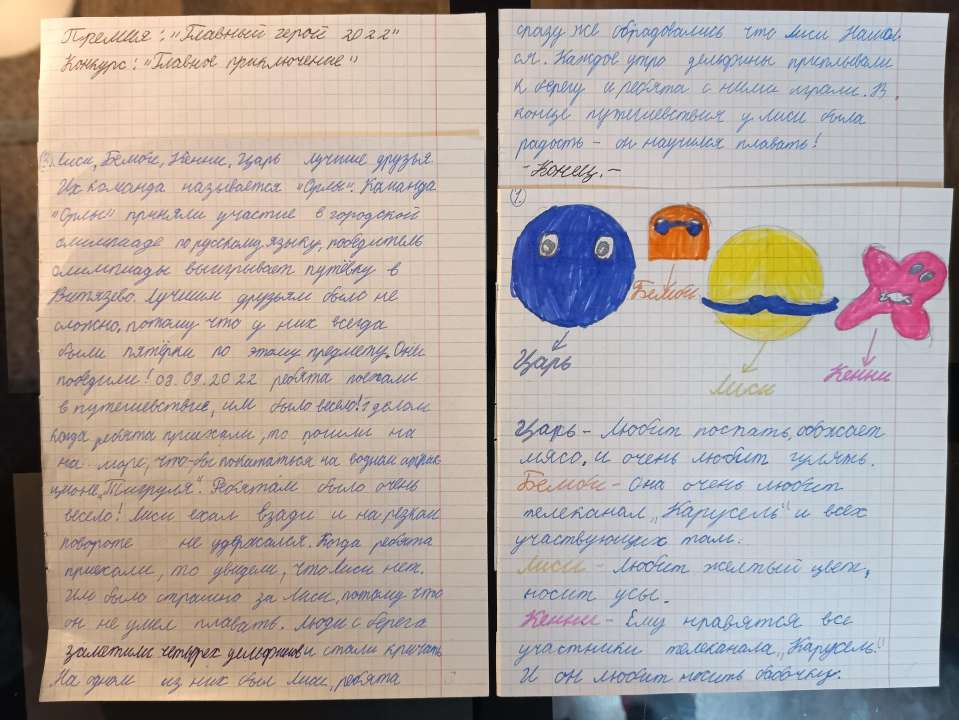 Премия: "Главный герой 2022"
Конкурс: "Главное приключение"
Лиси, Бемби, Кенни, Царь лучшие друзья
Их команда называется "Орлы". Команда
"Орлы" приняли участие в городской
олимпиаде по русскому языку, победитель
олимпиады выигрывает путёвку в
Витязево. Лучшим друзьям было не
сложно, потому что у них всегда
были пятёрки по этому предмету. Они
победили! 03.09.2022 ребята поехали
в путешествие, им было весело!
когда ребята приехали, то пошли на
на море, что-бы покататься на водном
"Тигруля". Ребятам было очень
весело! Лиси ехал взади и на резком
повороте не удержался. Когда ребята
приехали, то увидели, что Лиси нет.
Им было страшно за Лиси, потому что
он не умел плавать. Люди с берега
заметили четырех дельфинов и стали кричать
На одном из них был Лиси, ребята
сразу же обрадовались что Лиси нашёл
ся. Каждое утро дельфины приплывали
к берегу и ребята с ними играли. В
конце путешествия у Лиси была
радость - он научился плавать!
-Конец.-
1.
Бемби
Царь
Лиси
Кенни
Царь - Любит поспать, обожает
мясо, и очень любит гулять.
Бемби - Она очень любит
телеканал "Карусель" и всех
участвующих там.
Лиси - Любит желтый цвет,
носит усы.
Кенни - Ему нравятся все
участники телеканала "Карусель".
И он любит носить бабочку.